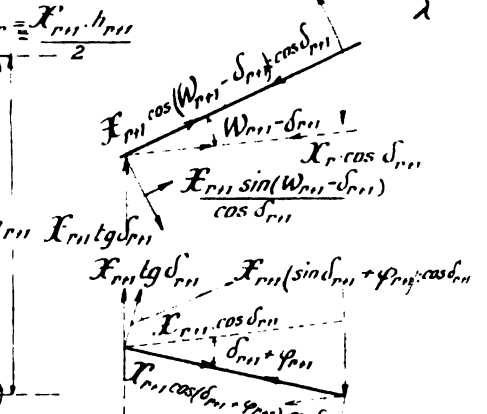 λ
r = X'r+1 · hr+1 / 2
Xr+1 cos(Wr+1 - δr+1) : cos δr+1
Wr+1 - δr+1
Xr · cos δr+1
Xr+1 sin(Wr+1 - δr+1) / cos δr+1
r+1 Xr+1 tg δr+1
Xr+1 tg δr+1
Xr+1 (sin δr+1 + φr+1) : cos δr+1
Xr+1 · cos δr+1
δr+1 + φr+1
Xr+1 cos(δr+1 + φr+1)